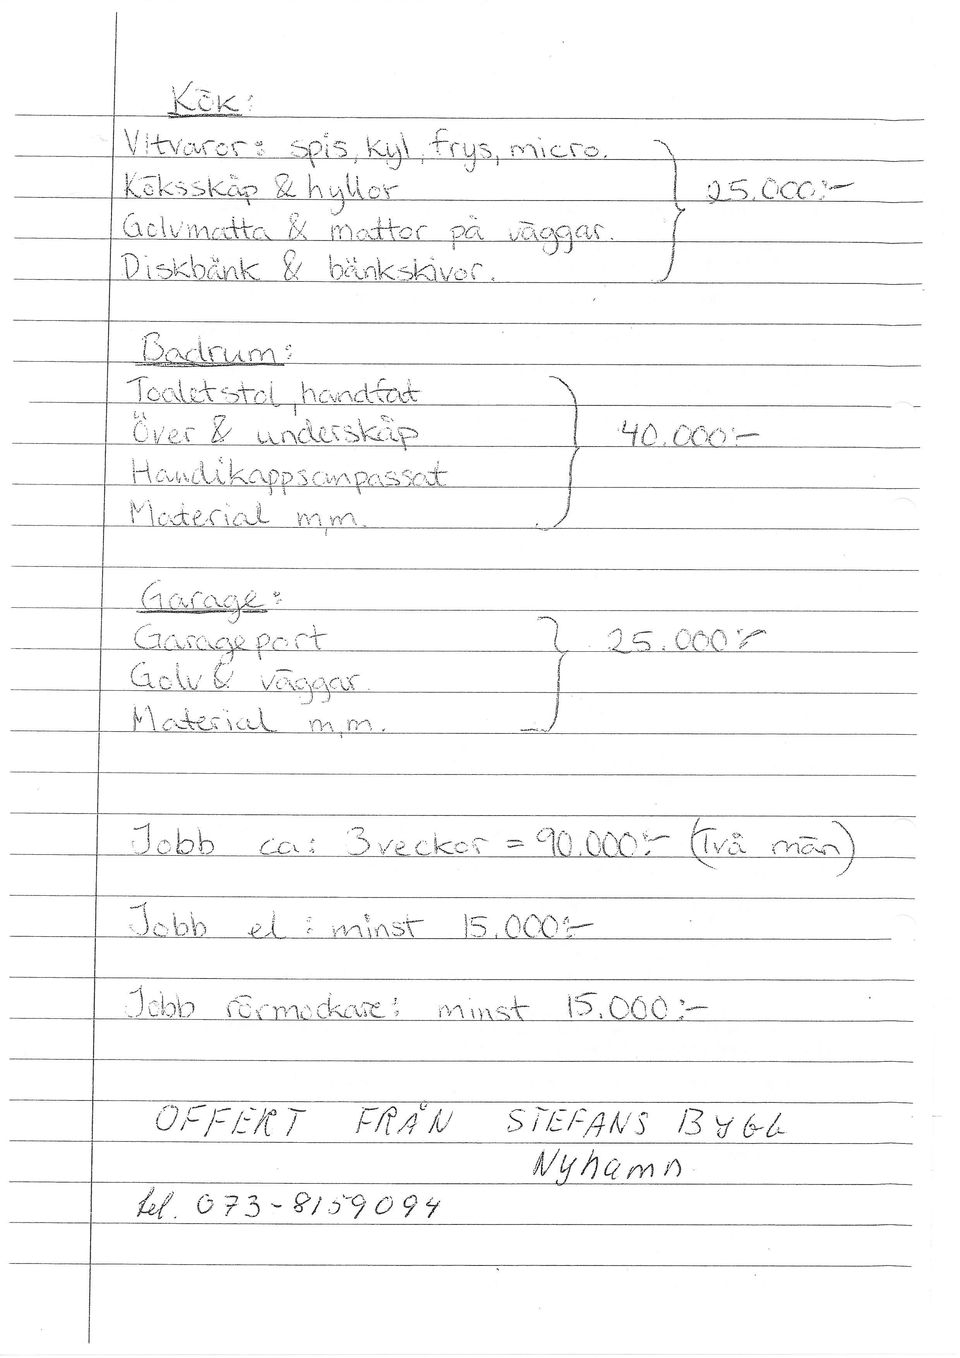 Kök:
Vitvaror: spis, kyl, frys, micro.
Köksskåp & hyllor 25.000:-
Golvmatta & mattor på väggar.
Diskbänk & bänkskivor.
Badrum:
Toaletstol, handfat
Över & underskåp 40.000:-
Handikappsanpassat
Material m,m.
Garage:
Garageport 25.000:-
Golv & väggar.
Material m,m.
Jobb ca: 3 veckor = 90.000:- (Två män)
Jobb el: minst 15.000:-
Jobb rörmockare: minst 15.000:-
OFFERT FRÅN STEFANS BYGG
Nyhamn.
tel. 073-8159094